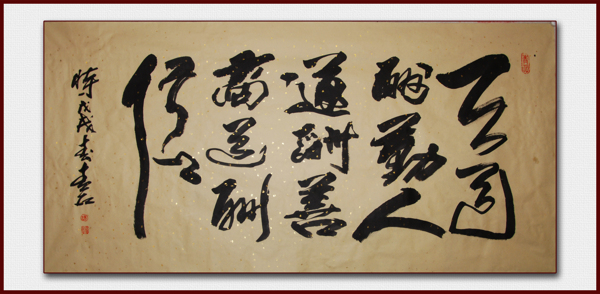 天道
酬勤人
道酬善
商道酬
信
時戊戌春